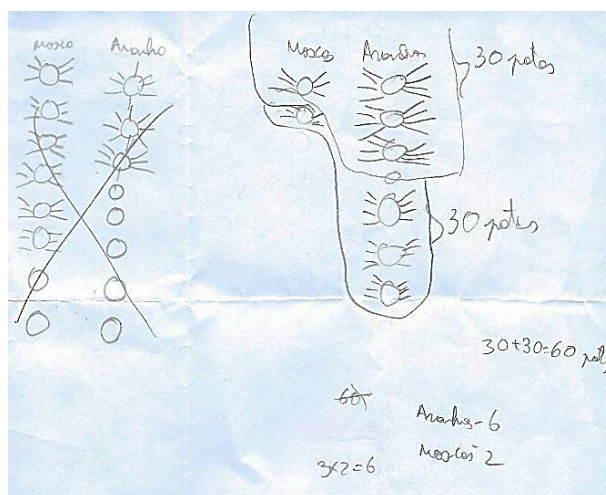 Mosca Aranha
Moscas Aranhas
30 patas
30 patas
30+30=60 patas
60
Aranhas-6
3x2=6
Moscas 2